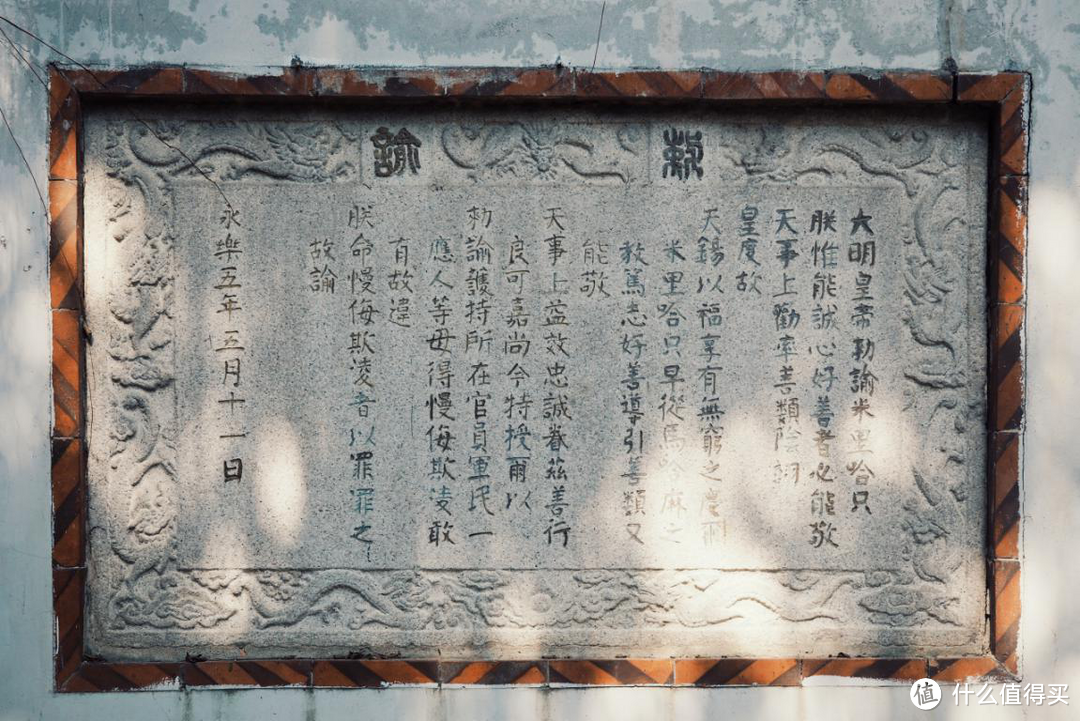 敕諭
大明皇帝勅諭米里哈只
朕惟能誠心好善者必能敬
天事上勸率善類陰詡
皇度故
天錫以福享有無窮之慶爾
米里哈只早從馬哈麻之
教篤志好善導引善類又
能敬
天事上益效忠誠眷茲善行
良可嘉尚今特授爾以
勅諭護持所在官員軍民一
應人等毋得慢侮欺凌敢
有故違
朕命慢侮欺凌者以罪罪之
故諭
永樂五年五月十一日
值 什么值得买